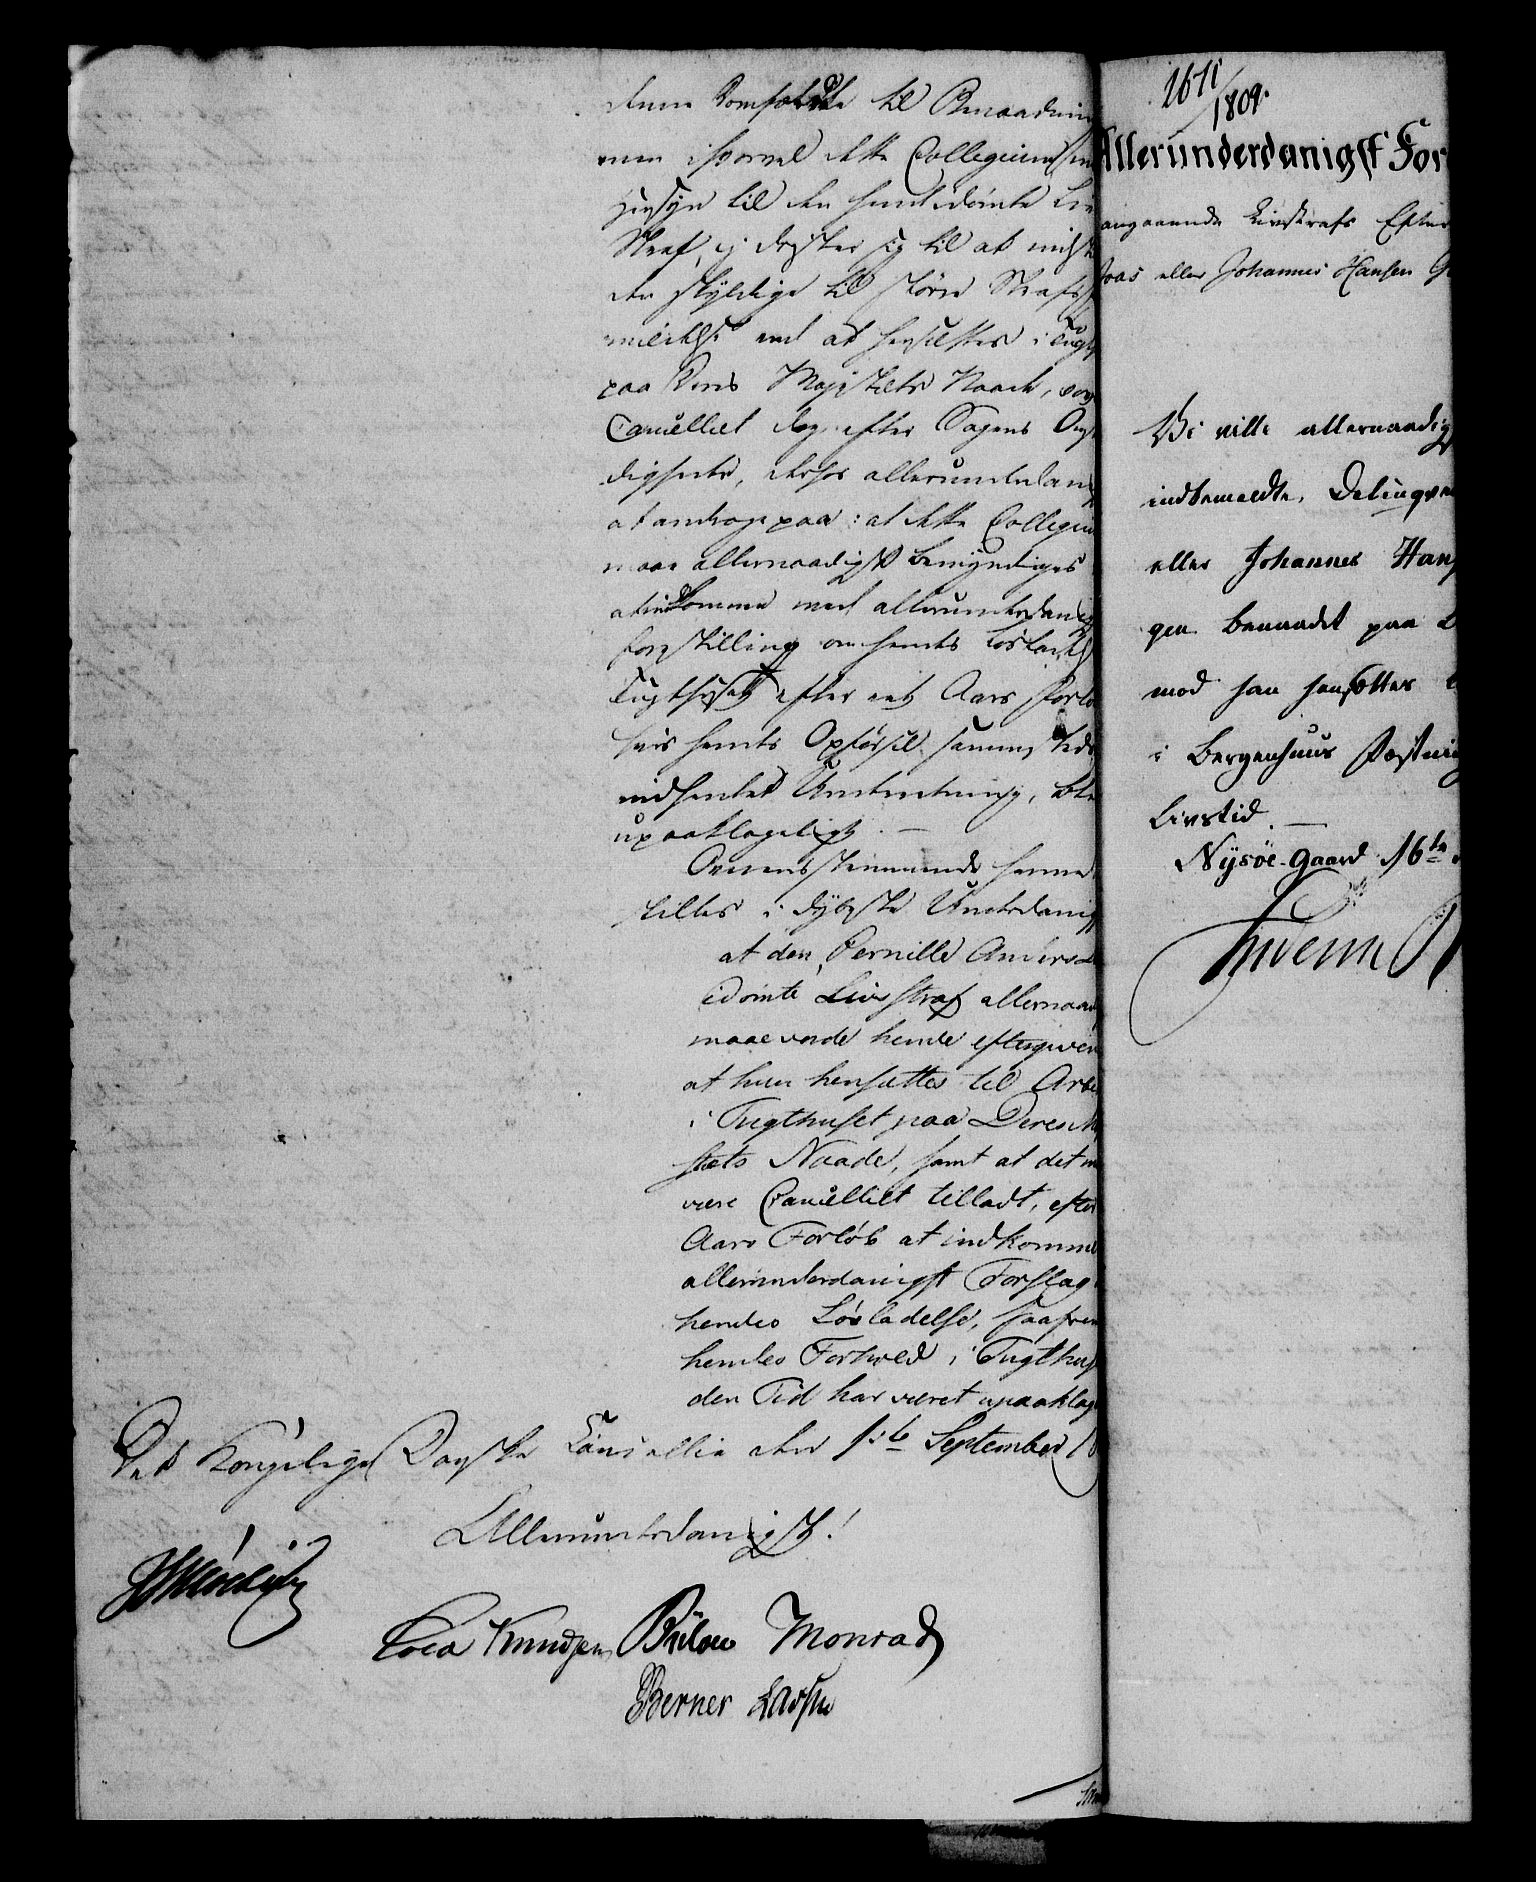 denne Domfældte til Benaadning
men ihvorvel dette Collegium
Hensyn til den hende idømte Livs
Straf, ej drister sig til at indst
den skyldige til større Straf
mildelse end at hensættes i Tugt
paa Deres Majestæts Naade, vov
Cancelliet dog efter Sagens Om
digheder, derfor allerunderdan
at andrage paa: at dette Collegiu
maae allernaadigst bemyndiges
at indkomme med allerunderdanig
forestilling om hendes Løsladelse
Tugthuset efter et Aars Forlø
hvis hendes Opførsel sammesteds
indhentet Underretning, ble
upaaklageligt. —
Overensstemmende herme
stilles i dybeste Underdanig
at den, Pernille Anders
idømte Livsstraf allernaa
maae vorde hende eftergiven
at hun hensættes til Arbe
i Tugthuset paa Deres M
stæts Naade, samt at det m
være Cancelliet tilladt, efter
Aars Forløb at indkomme
allerunderdanigst Forslag
hendes Løsladelse, saafrem
hendes Forhold i Tugthus
den Tid har været upaaklag
Det Kongelige Danske Cancellie den 1ste September 18
Allerunderdanigst!
Knudsen Bülow Monrad
Berner Lassen
1671/1809.
Allerunderdanigst For
angaaende Livsstrafs Efter
Joas eller Johannes Hansen
Vi ville allernaadigst
indbemeldte, Delinqven
eller Johannes Hans
gen benaadet paa L
mod han hensættes
i Bergenhuus Fæstning
Livstid. —
Nysøe-Gaard 16de
Frideric R